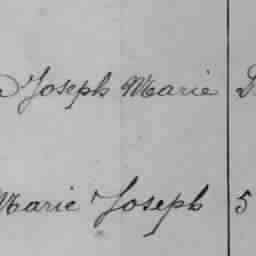 Joseph Marie D
Marie Joseph 5